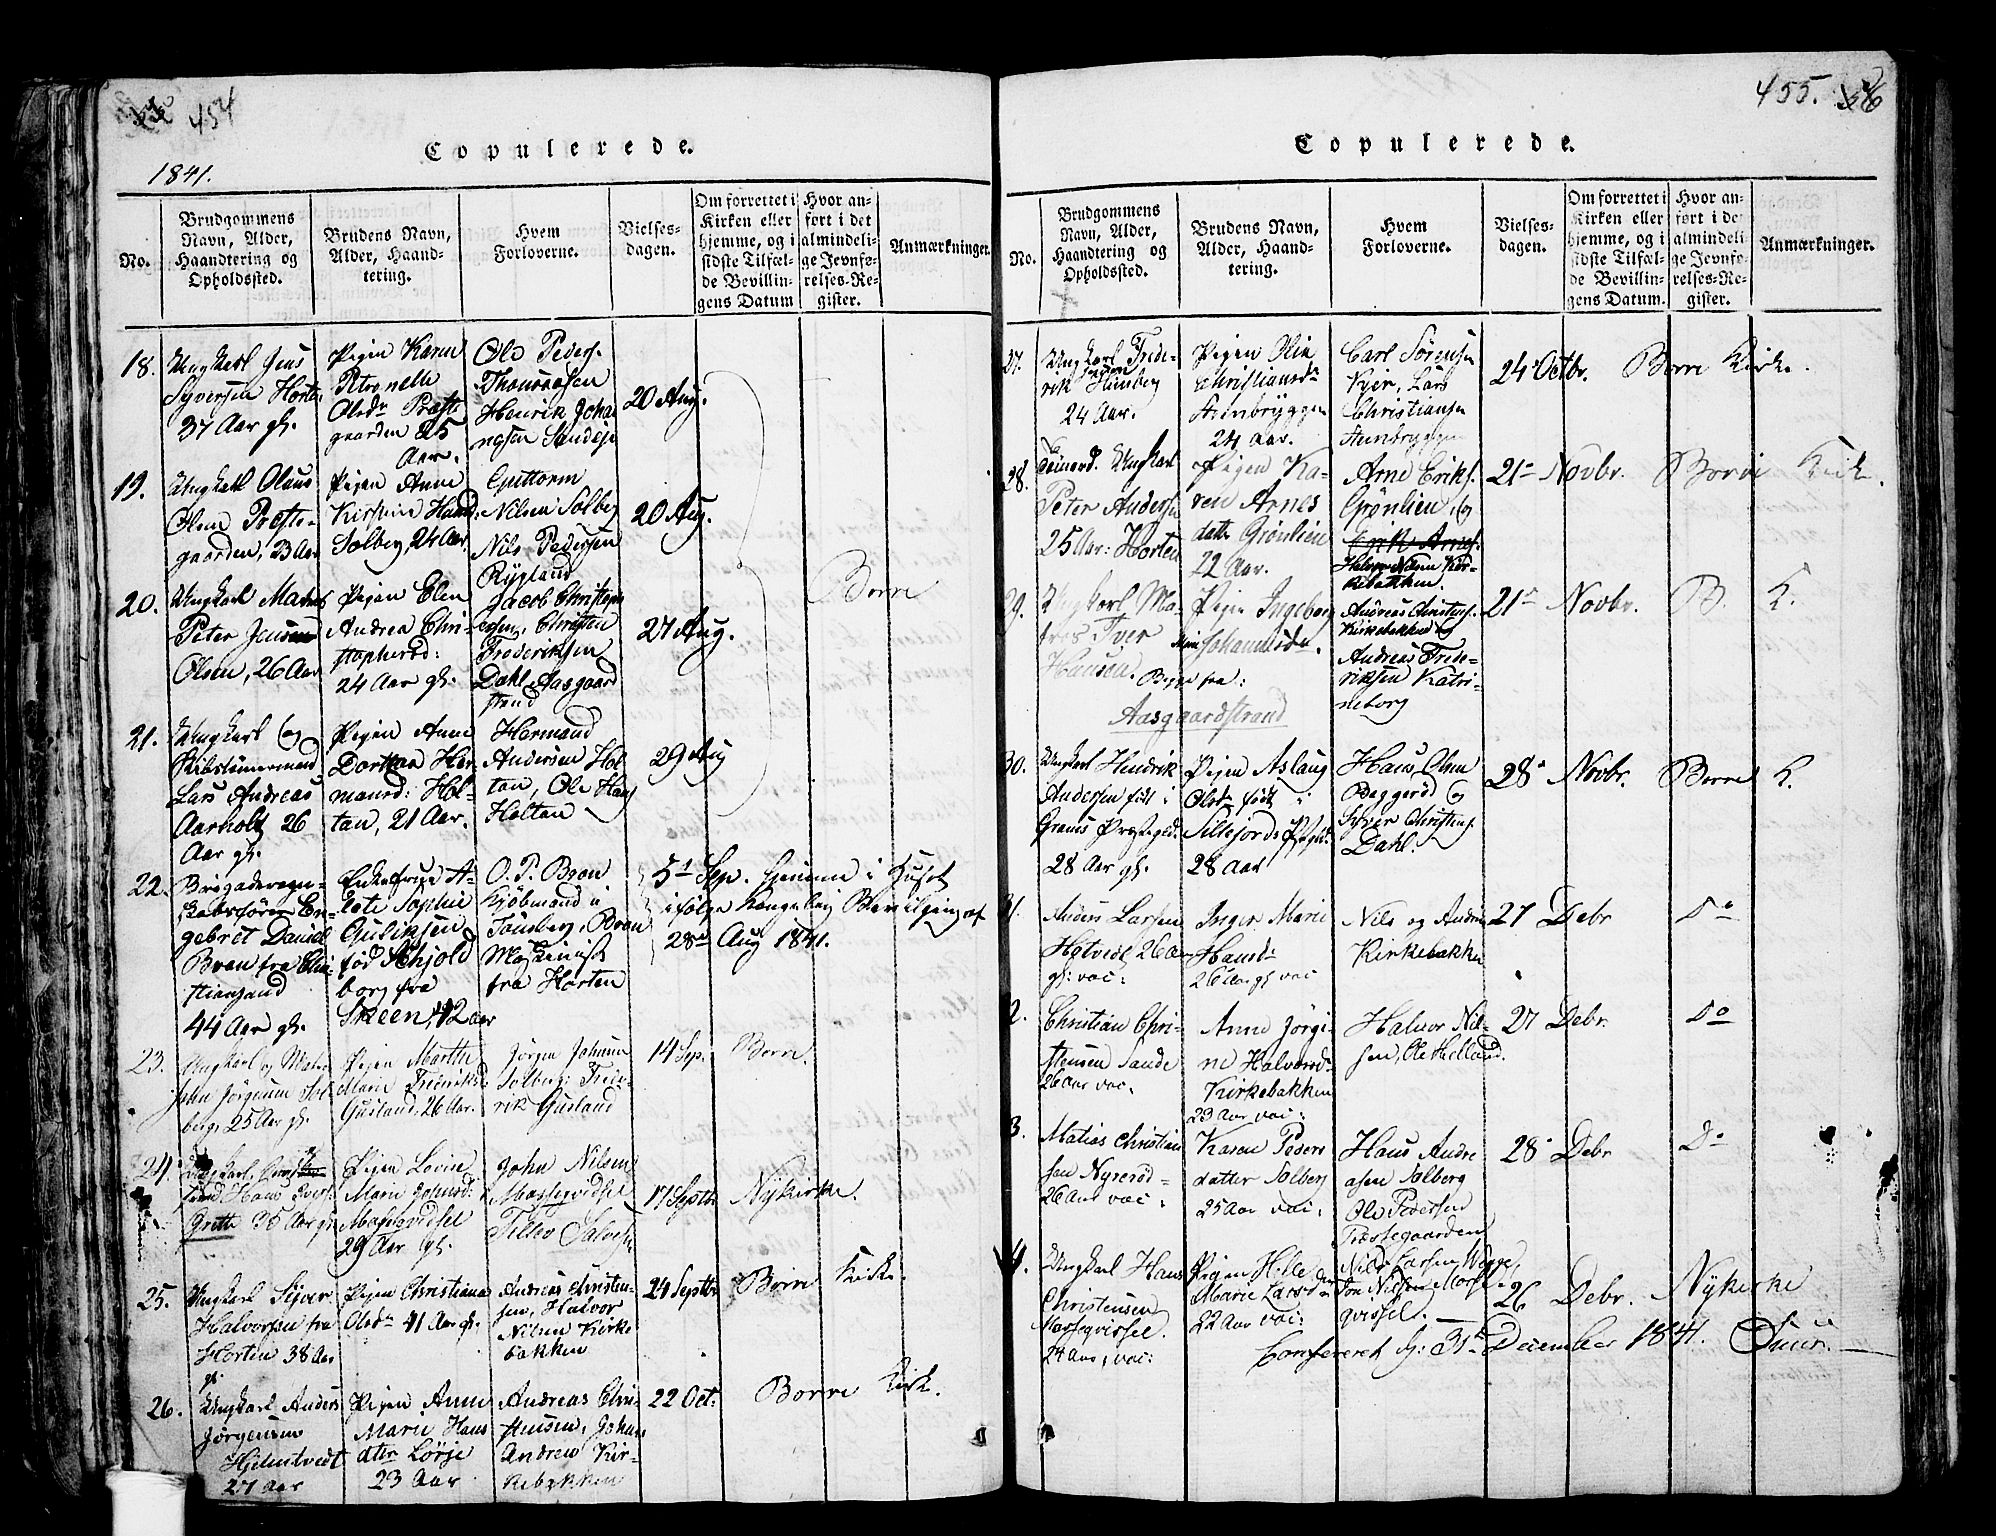 454
Copulerede.
1841.
No.
Brudgommens
Navn, Alder,
Haandtering og
Opholdssted.
Brudens Navn,
Alder, Haand-
tering.
Hvem
Forloverne.
Vielses-
dagen.
Om forrettet i
Kirken eller
hjemme, og i
sidste Tilfæl-
de Bevillin-
gens Datum
Hvor an-
ført i det
almindeli-
ge Jevnfø-
relses-Re-
gister.
Anmærkninger.
18.
Ungkarl Jens
Syversen Horten
37 Aar gl.
Pigen Karen
Petronelle
Olsdr Præste
gaarden 25
Aar.
Ole Peders.
Thomassen
Henrik Joha
nesen Sandeje
20 Aug.
19.
Ungkarl Olaus
Olsen Præste-
gaarden, 23 Aar
Pigen Anne
Kirstine Hand
Solberg, 24 Aar.
Guttorm
Nilsen Solberg
Nils Pedersen
Rygland
20 Aug.
20.
Ungkarl
Peter Jensen
Olsen, 26 Aar
Pigen Elen
Andrea Chri-
stophersd:
24 Aar gl.
Jacob Christoph
ersen, Christen
Frederiksen
Dahl Aasgaard
strand
27 Aug.
Borre
21.
Ungkarl og
Skibstømmermand
Lars Andreas
Aarholt 26
Aar gl.
Pigen Anne
Dorthea Her
mansd: Hol-
tan, 21 Aar.
Hermand
Andersen Hol
tan, Ole Hans
Holtan
29 Aug
22.
Brigaderegn-
skabsfører En-
gebret Daniel
Bran fra Chri-
stiansand
44 Aar gl.
Enkefrue A-
lete Sophie
Eriksen
fød Schjold
borg fra
Skeen, 42 aar
O. P. Bran
Kjøbmand i
Tønsberg, Bran
Maskinist
fra Horten
3de Sep. hjemme i Huset
ifølge Kongelig Bevilgning af
28de Aug 1841.
23.
Ungkarl og
John Jørgensen Sol
berg, 25 Aar gl.
Pigen Marthe
Marie Fredriksd
Gusland, 26 Aar.
Jørgen Johnsen
Solberg: Fred-
rik Gusland
14 Sep.
Borre.
24.
Hans
Grette 35 Aar gl
Pigen Lovise
Marie Johnsd:
Massequidsel
29 Aar gl.
John Nilsen
Massequidsel
Tellev
17 Septbr
Nykirke.
25.
Ungkarl Siver
Halvorsen fra
Horten 38 Aar
gl.
Pigen Christiana
Olsdr 41 Aar gl.
Andreas Christen-
sen, Halvor
Nilsen Kirke
bakken
24 Septbr
Borre Kirke.
26.
Ungkarl Anders
Jørgensen
Hjelmtvedt
27 Aar
Pigen Anne
Marie Hans
datr Lørje
23 Aar
Andreas Chri-
stensen, Johan
Andreas Kir-
kebakken
22 Oct:
Borre Kirk.
455.
Copulerede.
No.
Brudgommens
Navn, Alder,
Haandtering og
Opholdssted.
Brudens Navn,
Alder, Haand-
tering.
Hvem
Forloverne.
Vielses-
dagen.
Om forrettet i
Kirken eller
hjemme, og i
sidste Tilfæl-
de Bevillin-
gens Datum.
Hvor an-
ført i det
almindeli-
ge Jevnfø-
relses-Re-
gister.
Anmærkninger.
27.
Ungkarl Frede-
rik
24 Aar.
Pigen Olia
Christiansdr
Steenbryggen
24 Aar.
Carl Sørensen
Kjer, Lars
Christiansen
Steenbryggen
24 Octbr.
Borre Kirke.
28.
Ungkarl
Peter Andersen
25 Aar: Horten
Pigen Ka-
ren Arnes
datter Grønlien
22 Aar.
Arne Eriks.
Grønlien, og
Erik Arnes.
Halvor Nilsen Kir-
kebakken.
21 Novbr.
Borre Kirk.
29.
Ungkarl Ma-
Iver
Hansen.
Pigen Ingeborg
Johannesdr.
Begge fra:
Aasgaardstrand
Andreas Christens.
Kirkebakken og
Andreas Frede-
riksen Katri-
neborg
21 Novbr.
B. K.
30.
Ungkarl Hendrik
Andersen født i
Grans Præstegld:
28 Aar gl.
Pigen Aslaug
Olsdr født i
Sillejords Pregld:
28 Aar
Hans Olsen
Baggerød og
Syver Christens.
Dahl.
28 Novbr.
Borre K.
31.
Anders Larsen
Hotvedt, 26 Aar
gl: vac:
Inger Marie
Hansdr
26 Aar gl vac
Nils og Andre
Kirkebakken
27 Debr
Do
2.
Christian Chri-
stensen Sande
26 Aar vac:
Anne Jørgi-
ne Halvorsd:
Kirkebakken
23 Aar vac:
Halvor Nil-
sen, Ole Helland.
27 Debr.
Do
3.
Matias Christian
sen Nyrerød-
26 Aar vac:
Karen Peders
datter Solberg
25 Aar vac:
Hans Andre
asen Solberg
Ole Pedersen
Præstegaarden
28 Debr
Do
4.
Ungkarl Hans
Christensen
Massequissel.
24 Aar, vac:
Pigen Helle
Marie Larsdr
22 Aar vac:
Nils Larsen
Jon Nilsen Masse-
qvissel.
26 Debr.
Nykirke
Confereret d: 31te December 1841.